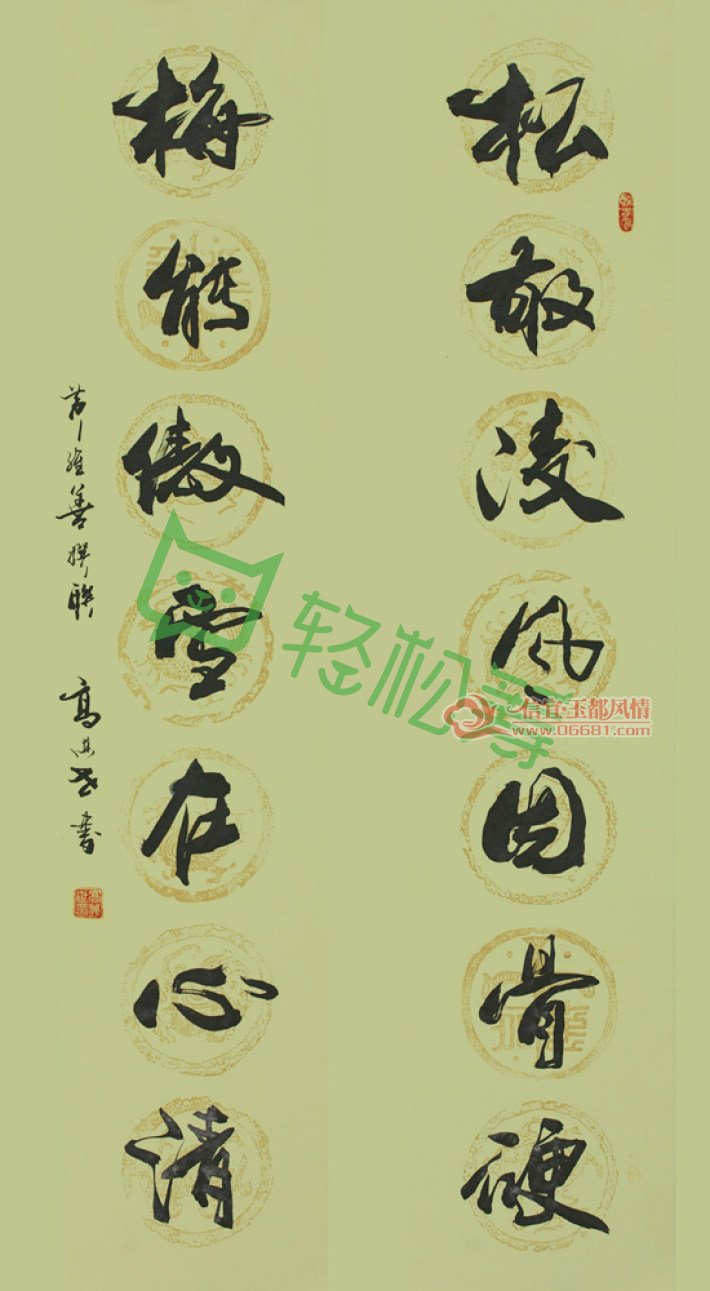 松敢凌风因骨硬
梅能傲雪在心清
维善撰联
高书
轻松
信宜·玉都风情
www.06681.com